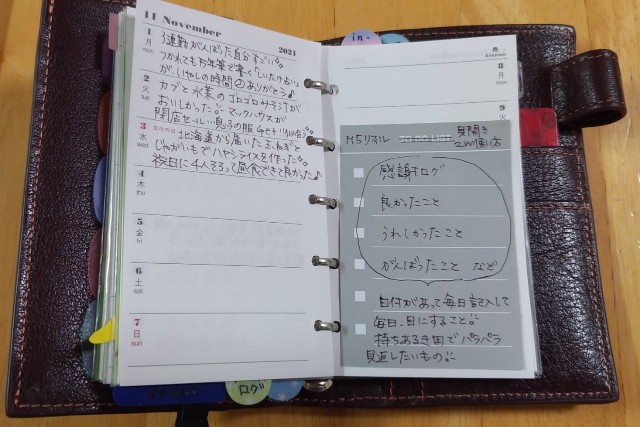 11 November
2021
1
月
mon
3連勤がんばった自分すごい
つかれても万年筆で書く「しいたけ占い」
が、いやしの時間 ありがとう♪
2
火
tue
カブと水菜のゴロゴロみそ汁が
おいしかった マックハウスが
閉店セールい、息子の服
3
文化の日
水
wed
北海道から届いた玉ねぎと
じゃがいもでハヤシライスを作った
祝日に4人そろって昼食できて良かった♪
4
木
thu
5
金
fri
6
土
sat
7
日
sun
in.
8
月
mon
9
火
M5リフィル TO DO LIST 見開き
2w使い方
感謝ログ
良かったこと
うれしかったこと
がんばったこと など
日付があって毎日記入して
毎日、目にすること
持ちあるき用でパラパラ
見返したいもの
ログ